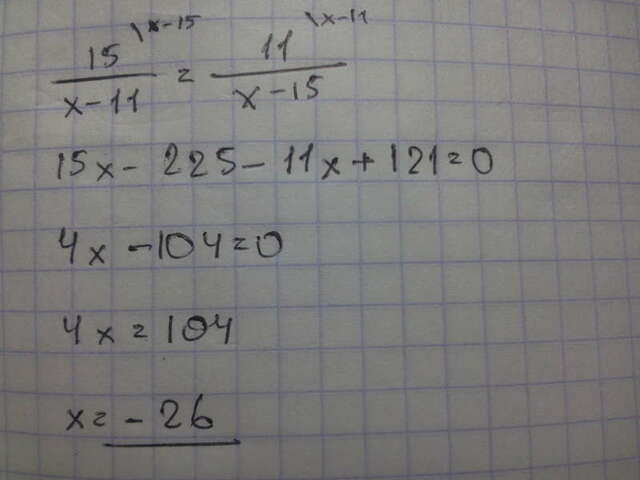 15 \x-15 = 11 \x-11
x-11 x-15
15x - 225 - 11x + 121 = 0
4x - 104 = 0
4x = 104
x = - 26